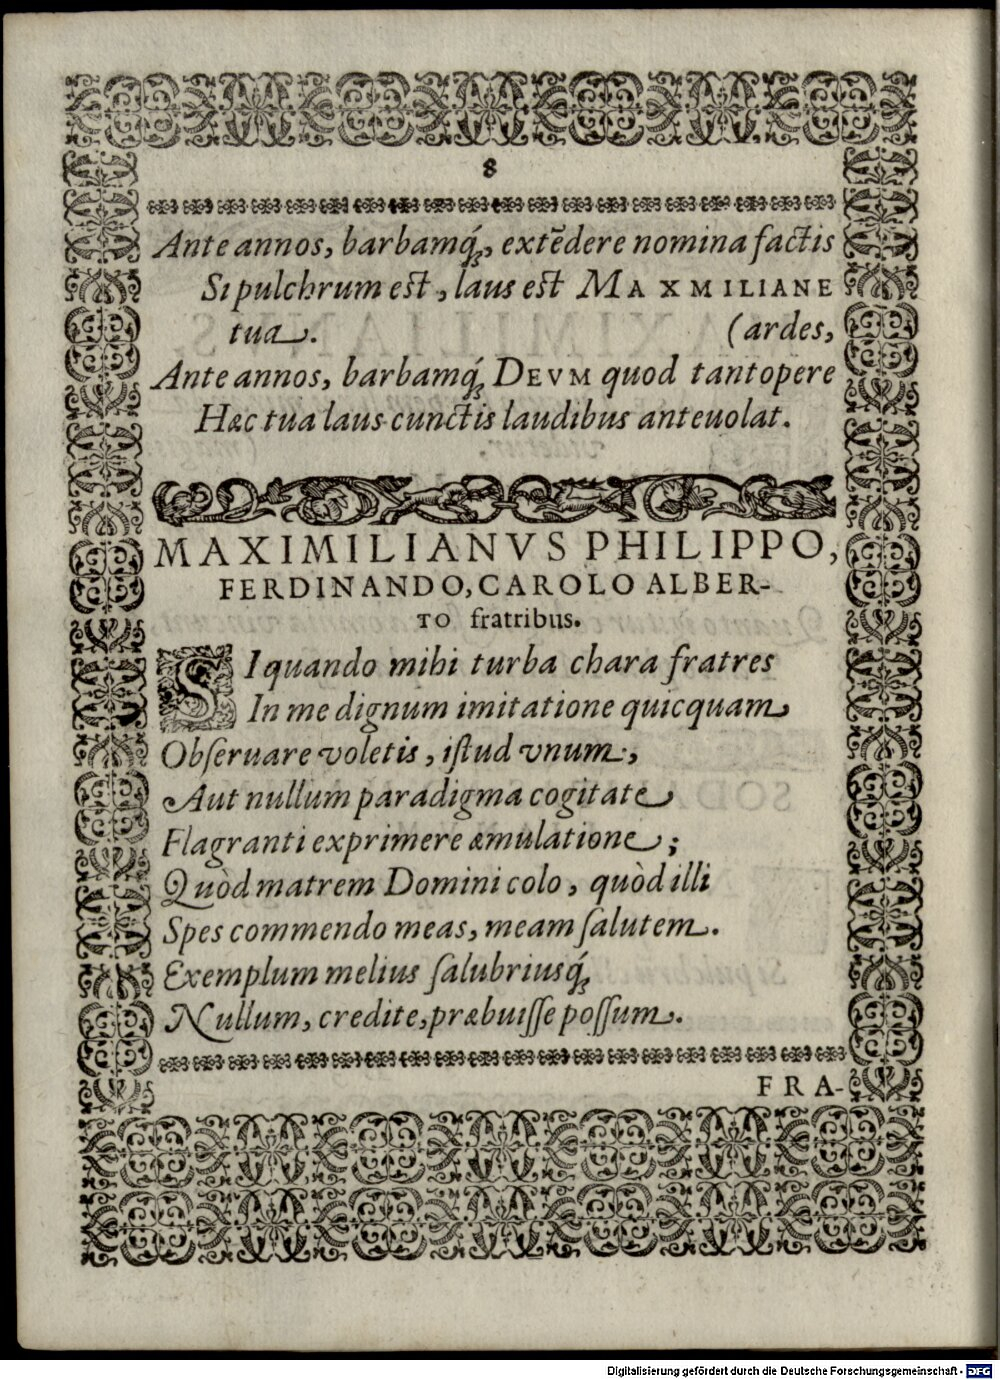 8
Ante annos, barbamq́;, extēdere nomina factis
Si pulchrum est, laus est MAXMILIANE
tua. (ardes,
Ante annos, barbamq́; DEVM quod tantopere
Hæc tua laus cunctis laudibus anteuolat.
MAXIMILIANVS PHILIPPO,
FERDINANDO, CAROLO ALBER-
TO fratribus.
SI quando mihi turba chara fratres
In me dignum imitatione quicquam
Obſeruare voletis, iſtud vnum,
Aut nullum paradigma cogitate
Flagranti exprimere æmulatione;
Quòd matrem Domini colo, quòd illi
Spes commendo meas, meam ſalutem.
Exemplum melius ſalubriusq́;
Nullum, credite, præbuiſſe poſſum.
FRA-
Digitalisierung gefördert durch die Deutsche Forschungsgemeinschaft - DFG